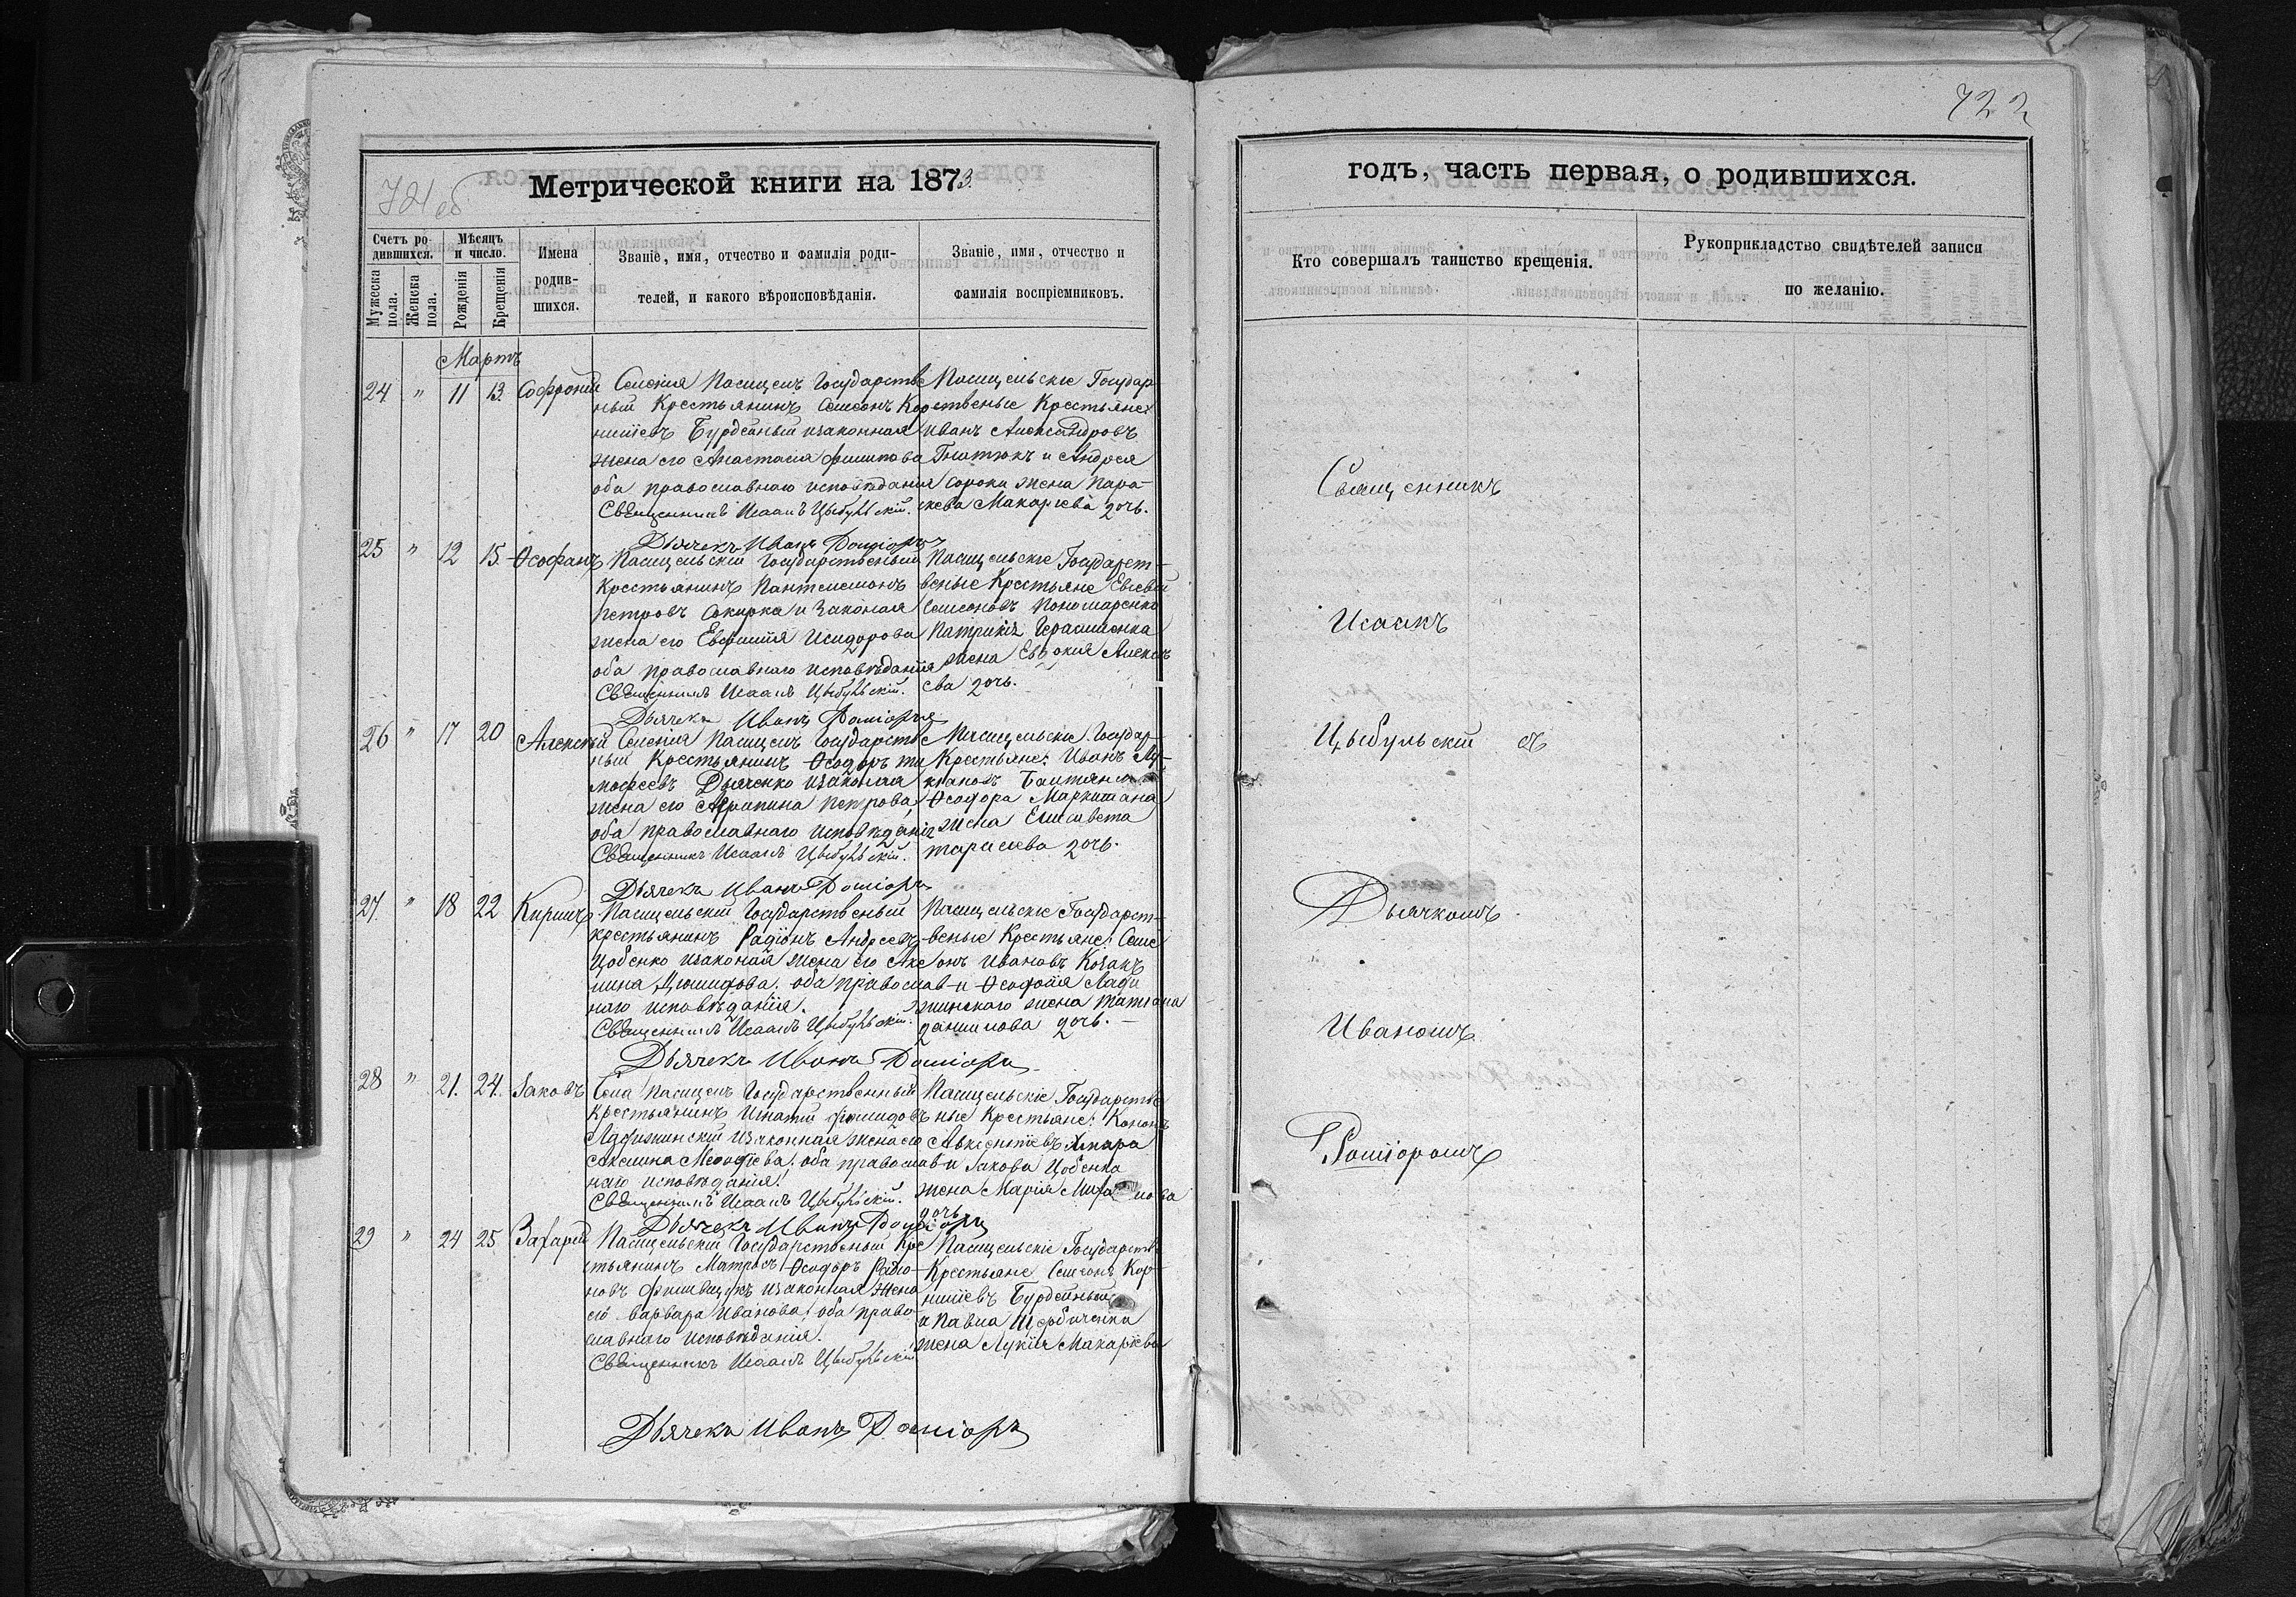 721 об
Метрической книги на 1873.
Счетъ ро-
дившихся.
Мужеска пола.
Женска пола.
Мѣсяцъ и число.
Рожденія
Крещенія
Имена родив-
шихся.
Званіе, имя, отчество и фамилія роди-
телей, и какого вѣроисповѣданія.
Званіе, имя, отчество и
фамилія воспріемниковъ.
Мартъ
24 " 11 13. Софроній
Селенія Пасицелъ Государстве
ный Крестьянинъ Симеонъ Кор
ниліевъ Бурдейный изаконная
жена его Анастасія Филипова
оба православнаго исповѣданія
Священникъ Исаакъ Цыбульскій.
Дьячекъ Иванъ Доміоръ
Пасицельскіе Государ-
ственые Крестьяне:
Иванъ Александровъ
Гнатюкъ и Андрея
Сорока жена Пара-
скева Макаріева дочь.
25 " 12 15. Ѳеофанъ
Пасицельскій Государственый
Крестьянинъ Пантелемонъ
Петровъ Сокирка и Законая
жена его Евфимія Исидорова
оба православнаго исповѣданія
Священникъ Исаакъ Цыбульскій.
Дьячекъ Иванъ Доміоръ
Пасицельскіе Государст-
веные Крестьяне Евсевій
Семеновъ Пономаренко
Патрикія Герасименка
жена Евдокія Алексѣ
ева дочь.
26 " 17 20 Алексѣй
Селенія Пасицелъ Государстве
ный Крестьянинъ Ѳеодоръ ти
мофеевъ Дьяченко изаконая
жена его Агрипина Петрова,
оба православнаго исповѣданія
Священникъ Исаакъ Цыбульскій.
Дьячекъ Иванъ Доміоръ
Пасицельскіе Государ-
Крестьяне: Иванъ Лу-
кіановъ
Ѳеодора Маркитана
жена Елисавета
тарасиева дочь.
27. " 18 22 Кирилъ
Пасицельскій Государственый
крестьянинъ Радіонъ Андреевъ
Цобенко изаконая жена его Аке
лина Диомидова. оба православ-
наго исповѣданія.
Священникъ Исаакъ Цыбульскій.
Дьячекъ Иванъ Доміоръ
Пасицельскіе Государст-
веные Крестьяне: Симе
онъ Ивановъ Козакъ
и Ѳеофила Лади
жинскаго жена татіана
данилова дочь.
28 " 21. 24. Іаковъ
Села Пасицелъ Государственный
крестьянинъ Игнатій
Ладыжинскій изаконная жена его
Меѳодіева: оба православ-
наго исповѣданія.
Священникъ Исаакъ Цыбульскій.
Дьячекъ Иванъ Доміоръ
Пасицельскіе Государстве
ные Крестьяне: Кононъ
Авксентіевъ Хмара
и Іакова Цобенка
жена Марія
дочь
29 " 24 25 Захарій
Пасицельскій Государственый Кре
стьянинъ Матросъ Ѳеодоръ Радіо-
новъ изаконная жена
его Варвара Иванова: оба право-
славнаго исповѣданія.
Священникъ Исаакъ Цыбульскій
Дьячекъ Иванъ Доміоръ
Пасицельскіе Государств
Крестьяне Симеонъ Кор-
ниліевъ Бурдейный
и Павла Щербиченка
жена Лукія Макаріева
722
годъ, часть первая, о родившихся.
Кто совершалъ таинство крещенія.
Рукоприкладство свидѣтелей записи
по желанію.
Священникъ
Исаакъ
Цыбульскій съ
Дьячкомъ
Иваномъ
Доміоромъ